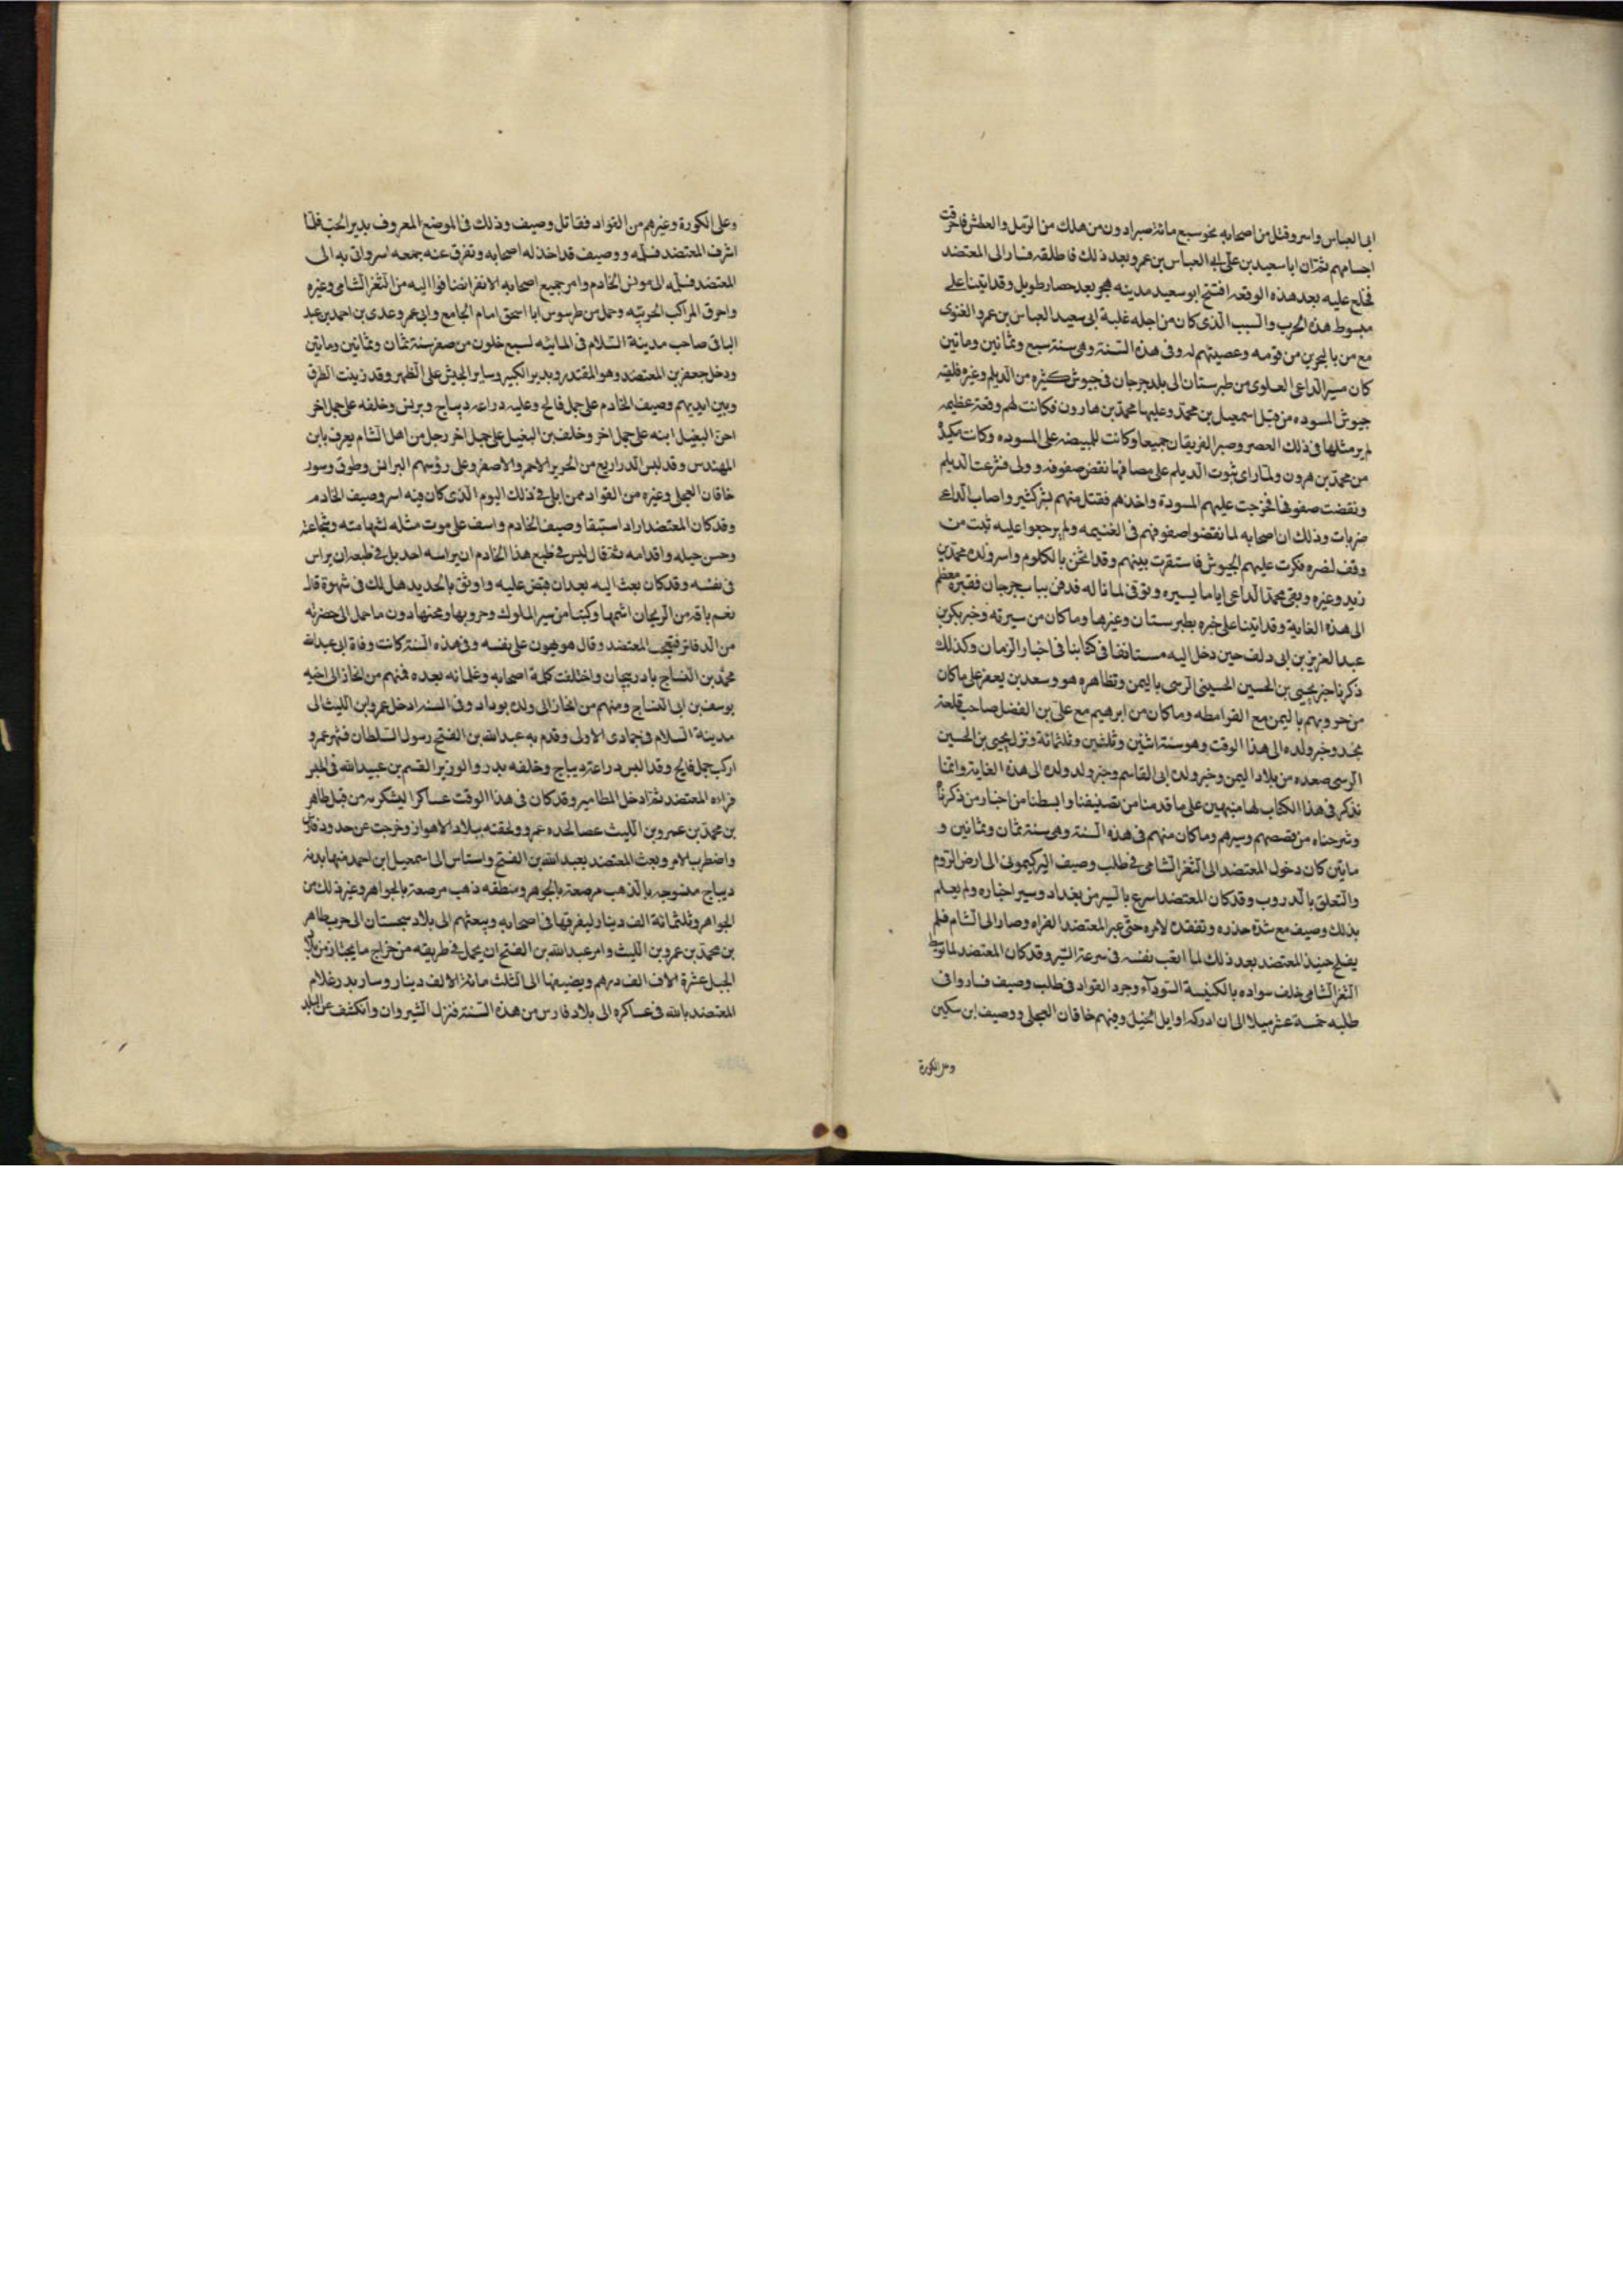 ابى العباس واسر وقتل من اصحابه نحو سبع مائة صبرا دون من هلك من الرمل والعطش فاحرقت
اجسامهم ثم ان ابا سعيد بن على ابى العباس بن عمرو بعد ذلك فاطلقه فصار الى المعتضد
فخلع عليه بعد هذه الوقعه افتتح ابو سعيد مدينه هجر بعد حصار طويل وقد اتينا على
مبسوط هذه الحرب والسبب الذى كان من اجله غلبة ابى سعيد العباس بن عمرو الغنوى
مع من بالبحرين من قومه وعصبيتهم له وفى هذه السنة وهى سنة سبع وثمانين وماتين
كان مسير الداعى العلوى من طبرستان الى بلد جرجان فى جيوش كثيره من الديلم وغيره فلقيه
جيوش المسوده من قبل اسمعيل بن محمد وعليها محمد بن هارون فكانت لهم وقعة عظيمه
لم ير مثلها فى ذلك العصر وصبر الفريقان جميعا وكانت للمبيضه على المسوده وكانت مكيدة
من محمد بن هرون ولما راى ثبوت الديلم على مصافها نقض صفوفه وولى فشرعت الديلم
ونقضت صفوفها فخرجت عليهم المسودة واخذهم فقتل منهم بشر كثير واصاب الداعى
ضربات وذلك ان اصحابه لما نقضوا صفوفهم فى الغنيمه ولم يرجعوا عليه ثبت من
وقف لنصره فكرت عليهم الجيوش فاستقرت بينهم وقد اثخن بالكلوم واسر ولده محمد بن
زيد وغيره وبقى محمد الداعى اياما يسيره وتوفى لما ناله فدفن بباب جرجان فقبره معظم
الى هذه الغاية وقد اتينا على خبره بطبرستان وغيرها وما كان من سيرته وخبر بكر بن
عبد العزيز بن ابى دلف حين دخل اليه مستانفا فى كتابنا فى اخبار الزمان وكذلك
ذكرنا خبر يحيى بن الحسين الحسينى الرسى باليمن وتظاهره هو وسعد بن يعفر على ما كان
من حروبهم باليمن مع القرامطه وما كان من ابرهيم مع على بن الفضل صاحب قلعة
نجد وخبر ولده الى هذا الوقت وهو سنة اثنين وثلثين وثلثمائة ونزل يحيى بن الحسين
الرسى صعده من بلاد اليمن وخبر ولده ابى القاسم وخبر ولد ولده الى هذه الغاية وانما
نذكر فى هذا الكتاب لها منبهين على ما قدمنا من تصنيفنا وابسطنا من اخبار من ذكرناه
وشرحناه من قصصهم وسيرهم وما كان منهم فى هذه السنة وهى سنة ثمان وثمانين و
ماتين كان دخول المعتضد الى الثغر الشامى فى طلب وصيف الى ارض الروم
والتعلق بالدروب وقد كان المعتضد اسرع بالسير من بغداد وسير اخباره ولم يعلم
بذلك وصيف مع شدة حذره وتفقده لامره حتى عبر المعتضد الفراه وصار الى الشام فلم
يفلح جند المعتضد بعد ذلك لما اتعب نفسه فى سرعة السير وقد كان المعتضد لما توسط
الثغر الشامى خلف سواده بالكنيسة السودآء وجرد القواد فى طلب وصيف فساروا فى
طلبه خمسة عشر ميلا الى ان ادركه اوايل الخيل وفيهم خاقان العجلى ووصيف ابن سكين
وعلى الكورة
وعلى الكورة وغيرهم من القواد فقاتل وصيف وذلك فى الموضع المعروف بدير الجب فلما
اشرف المعتضد ووصيف قد اخذ له اصحابه وتفرق عنه جمعه اسر واتى به الى
المعتضد فسلمه الى مونس الخادم وامر جميع اصحابه الا نفر انضافوا اليه من الثغر الشامى وغيره
واحرق المراكب الحربيه وحمل من طرسوس ابا اسحق امام الجامع وابى عمرو عدى بن احمد بن عبد
الباقى صاحب مدينة السلام فى المايئه لسبع خلون من صفر سنة ثمان وثمانين وماتين
ودخل جعفر بن المعتضد وهو المقتدر وبدير الكبير وساير الجيش على الظهر وقد زينت الطرق
وبين ايديهم وصيف الخادم على جمل فالج وعليه دراعه ديباج وبرنس وخلفه على جمل اخر
احن البغيل ابنه على جمل اخر وخلف بن البغيل على جمل اخر رجل من اهل الشام يعرف بابن
المهندس وقد لبس الدراريع من الحرير الاحمر والاصفر وعلى رؤسهم البرانس وطوق وسور
خاقان العجلى وغيره من القواد ممن ابلى فى ذلك اليوم الذى كان فيه اسر وصيف الخادم
وقد كان المعتضد اراد استبقا وصيف الخادم واسف على موت مثله لشهامته وشجاعته
وحسن حيله واقدامه ثم قال ليس فى طبع هذا الخادم ان يراسه احد بل فى طبعه ان يراس
فى نفسه وقد كان بعث اليه بعد ان قبض عليه واوثق بالحديد هل لك فى شهوة قال
نعم باقه من الريحان اشمها وكتبا من سير الملوك وحروبها ومحنها دون ما حمل الى حضرته
من الدفاتر فتعجب المعتضد وقال هو يهون على نفسه وفى هذه السنة كانت وفاة ابى عبد الله
محمد بن الساج باذربيجان واختلفت كلمة اصحابه وغلمانه بعده فمنهم من انحاز الى اخيه
يوسف بن ابى الساج ومنهم من انحاز الى ولده بوداد وفى السنه ادخل عمرو ابن الليث الى
مدينة السلام فى جمادى الاولى وقدم به عبد الله بن الفتح رسول السلطان فشهر عمرو
اركب جمل فالج وقد البس دراعة ديباج وخلفه بدر والوزير القسم بن عبيد الله فى الجيش
فراه المعتضد ثم ادخل المطامير وقد كان فى هذا الوقت من قبل طاهر
بن محمد بن عمرو بن الليث ولحقته ببلاد الاهواز وخرجت عن حدود فارس
واضطرب الامر وبعث المعتضد بعبد الله بن الفتح واستاس الى اسمعيل ابن احمد منها بدنه
ديباج منسوجه بالذهب مرصعة بالجوهر ومنطقه ذهب مرصعة بالجواهر وغير ذلك من
الجواهر وثلثمائة الف دينار ليفرقها فى اصحابه ويبعثهم الى بلاد سجستان الى حرب طاهر
بن محمد بن عمرو بن الليث وامر عبد الله بن الفتح ان يحمل فى طريقه من خراج ما يجتاز من بلاد
الجبل عشرة الاف الف درهم ويضيفها الى الثلث مائة الالف دينار وسار بدر غلام
المعتضد بالله فى عساكره الى بلاد فارس من هذه السنة فنزل الشيروان وانكشف عن البلد